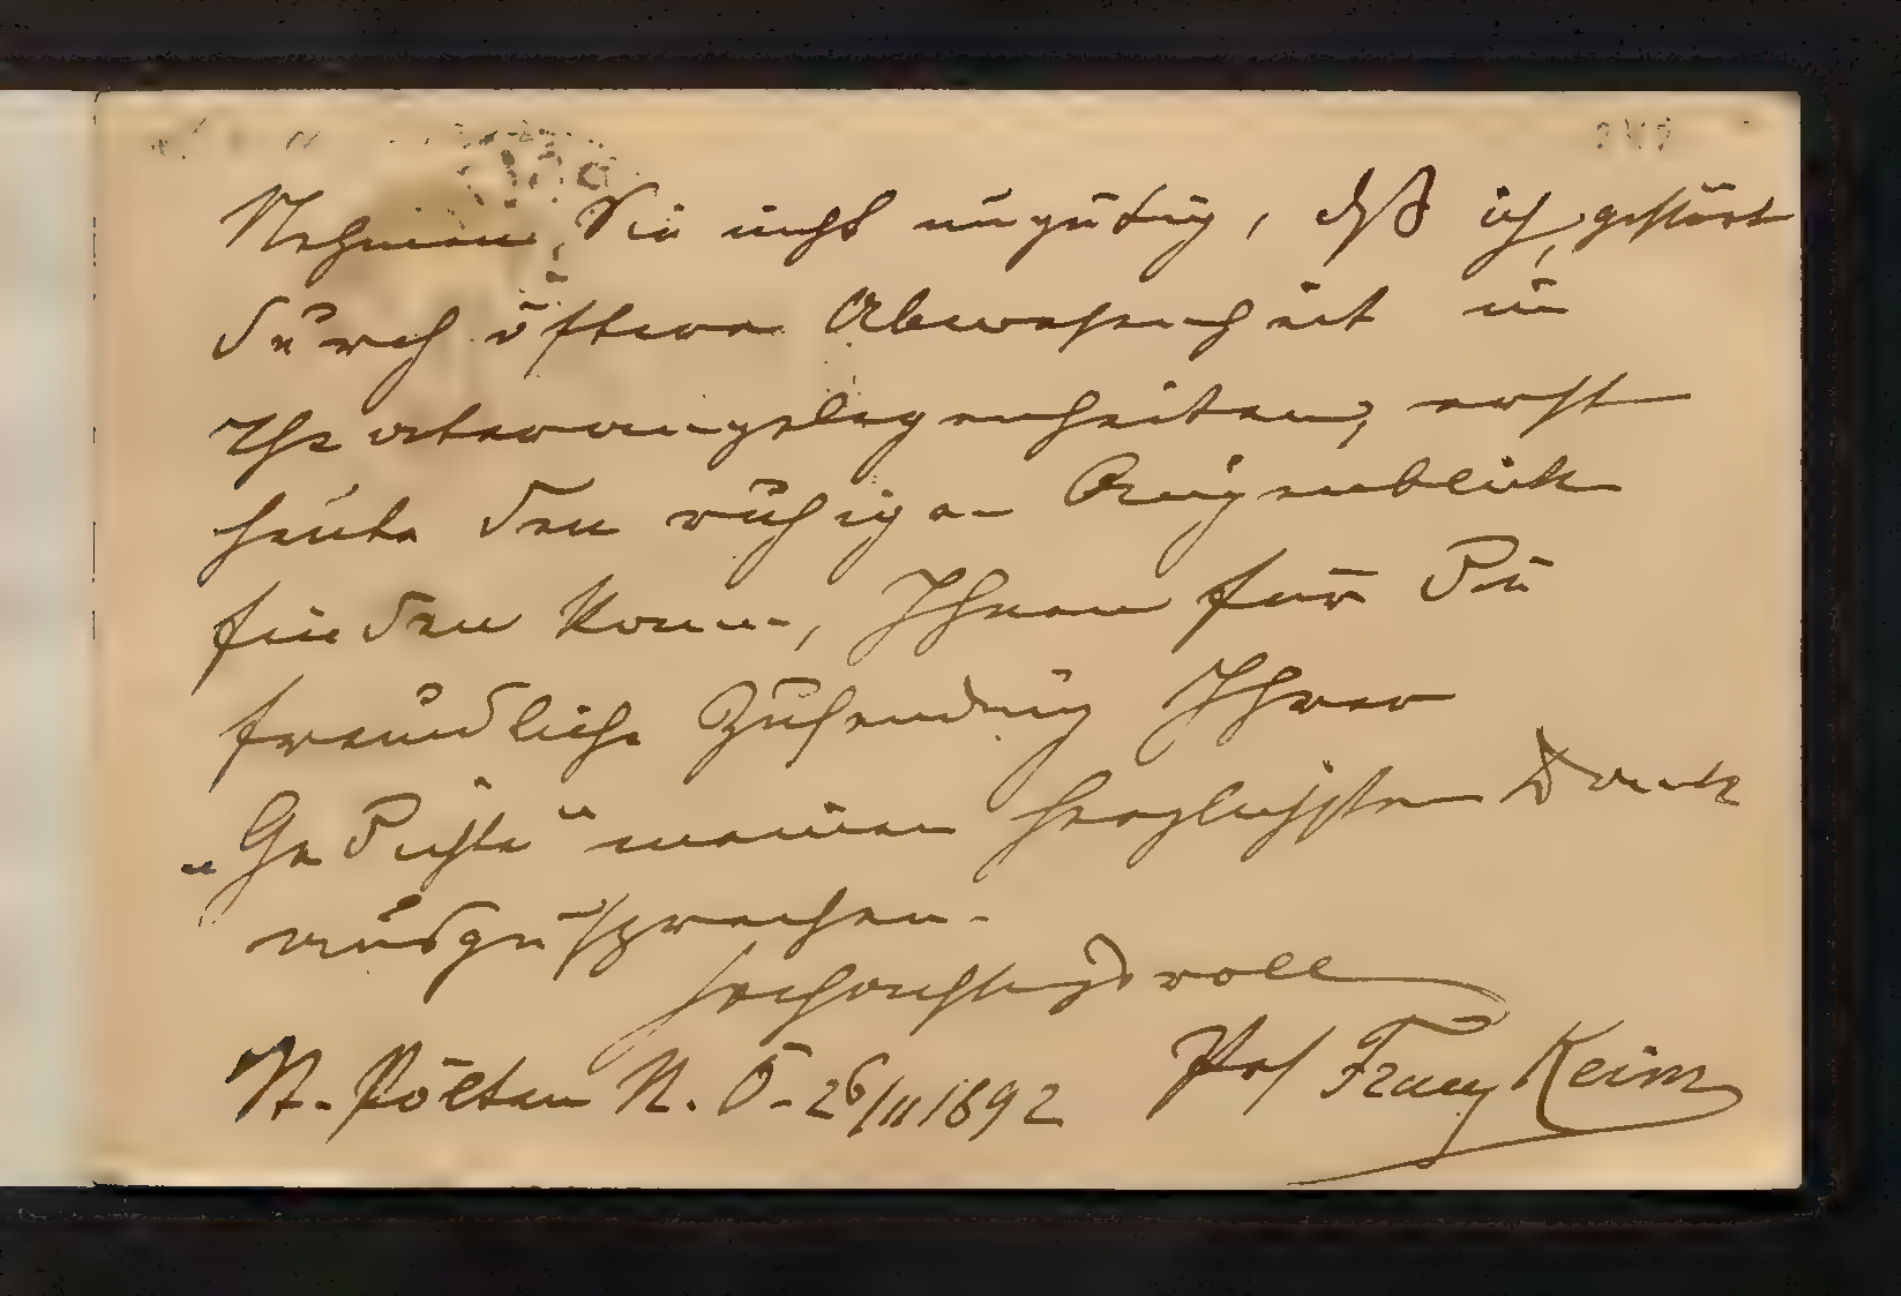 Nehmen Sie nicht ungütig, dß ich, gestört
durch öftere Abwesenheit in
Theaterangelegenheiten, erst
heute den ruhigen Augenblick
finden kann, Ihnen für die
freundliche Zusendung Ihrer
„Gedichte“ meinen herzlichsten Dank
auszusprechen.
hochachtungsvoll
St. Pölten N. Ö. 26/II 1892 Prof Franz Keim